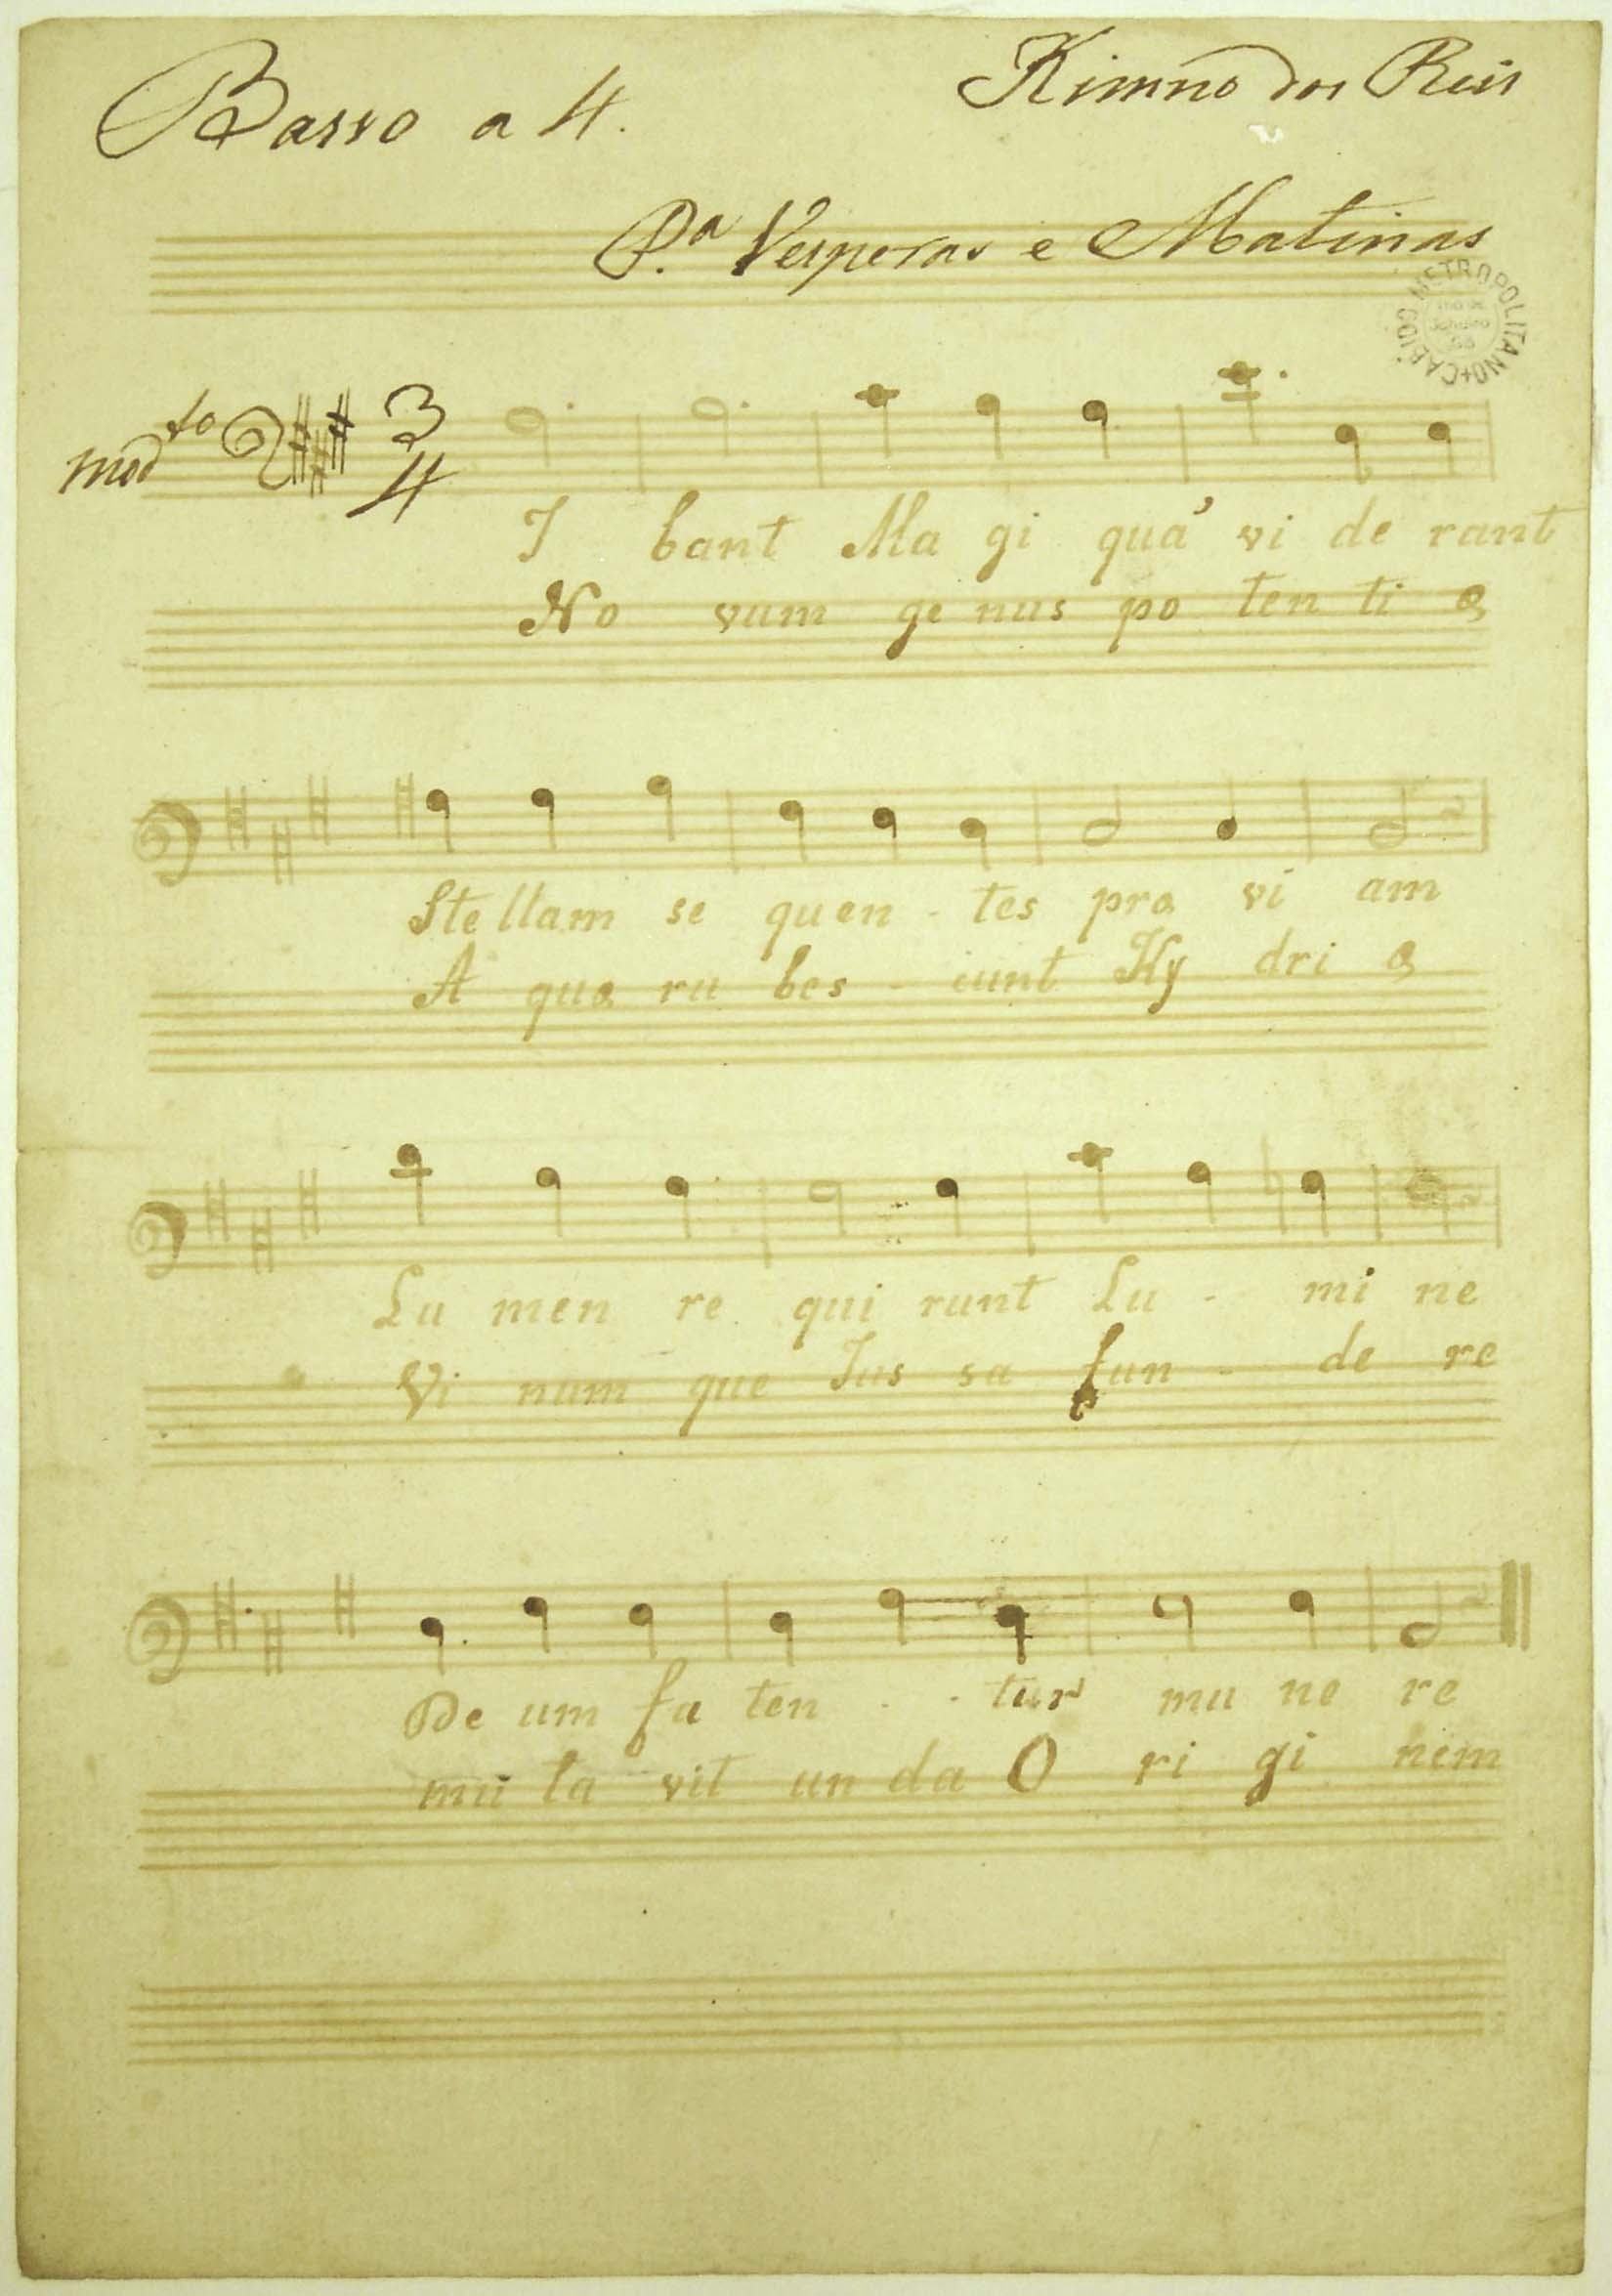 Basso a 4.
Himno dos Reis
P.ª Vesperas e Matinas
CABIDO METROPOLITANO
mod.to 3/4
I bant Ma gi quá vi de rant
No vum ge nus po ten ti æ
Stellam se quen - tes præ vi am
A quæ ru bes - cunt Hy dri æ
Lu men re qui runt Lu - mi ne
Vi num que Jus sa fun - de re
De um fa ten - - tur mu ne re
mu ta vit un da O ri gi nem